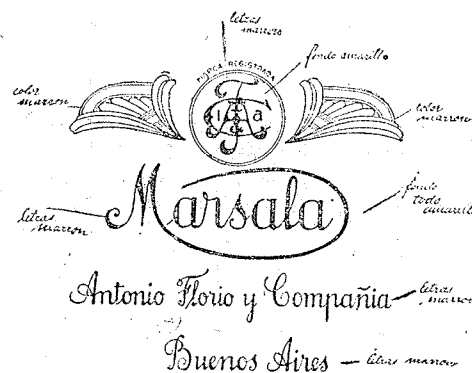 letras
marron
MARCA REGISTRADA
fondo amarillo
color
marron
color
marron
Marsala
letras
marron
fondo
todo
amarill
Antonio Florio y Compañia
letras
marron
Buenos Aires
letras marron